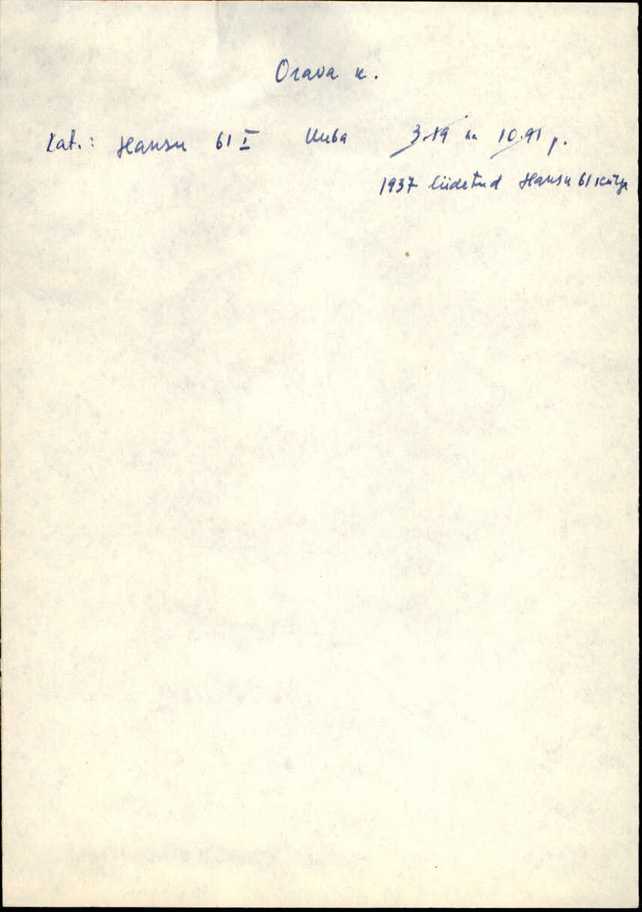 Orava k.
Kat.: Hansu 61 I Uuba 3.19 ja 10.91 p.
1937 liidetud Hansu 61 külge